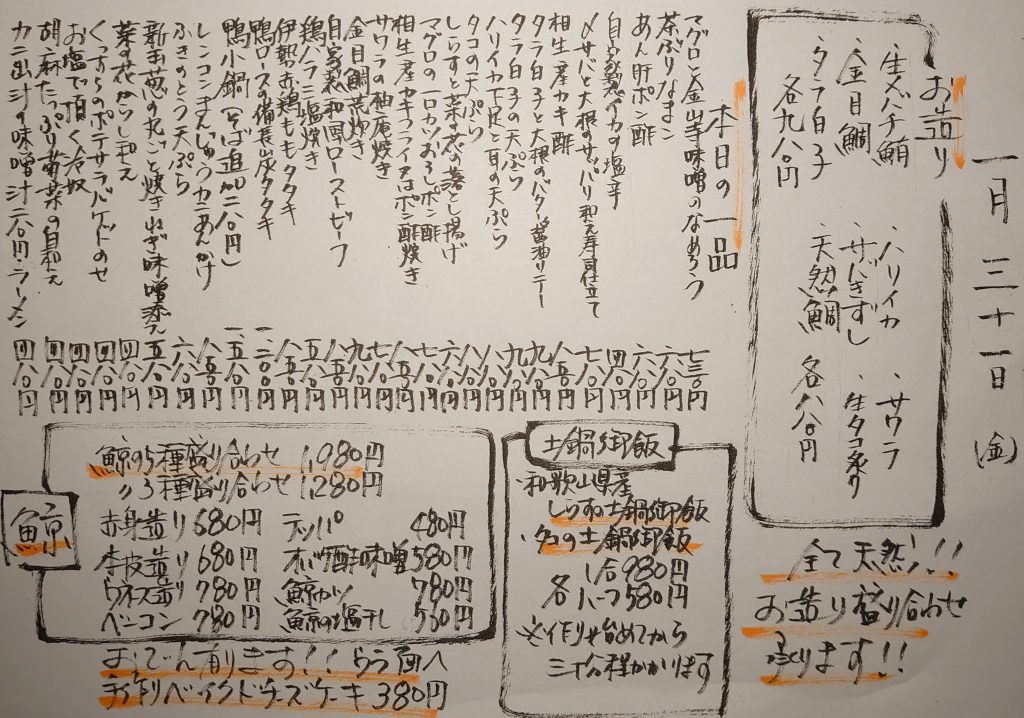 一月三十一日(金)
お造り
・生メバチ鮪
・金目鯛
・タラ白子
各九八〇円
・ハリイカ
・サバきずし
・天然鯛
・サワラ
・生タコ炙り
各八八〇円
全て天然!!
お造り盛り合わせ
承ります!!
本日の一品
マグロと金山寺味噌のなめろう 七三〇円
茶ぶりなまこ 六八〇円
あん肝ポン酢 六八〇円
自家製イカの塩辛 四八〇円
〆サバと大根のサッパリ和え寿司仕立て 七八〇円
相生産カキ酢 八五〇円
タラ白子と大根のバター醤油ソテー 九八〇円
タラ白子の天ぷら 九八〇円
ハリイカ下足と耳の天ぷら 八八〇円
タコの天ぷら 八八〇円
しらすと菜の花の落とし揚げ 六八〇円
マグロの一口カツおろしポン酢 七八〇円
相生産カキフライ又はポン酢焼き 八八〇円
サワラの柚庵焼き 七八〇円
金目鯛荒炊き 九八〇円
自家製和風ローストビーフ
鶏ハラミ塩焼き 五八〇円
伊勢赤鶏ももタタキ 八五〇円
鴨ロースの備長炭タタキ 一、二〇〇円
鴨小鍋(そば追加二八〇円) 一、五八〇円
レンコンまんじゅうカニあんかけ 八五〇円
ふきのとう天ぷら 六八〇円
新玉葱の丸ごと焼きねぎ味噌添え 五八〇円
菜の花からし和え 四八〇円
くっすらのポテサラバゲットのせ 四八〇円
お塩で頂く冷奴 四八〇円
胡麻たっぷり菊菜の白和え 四八〇円
カニ出汁の味噌汁二八〇円・ラーメン 四八〇円
鯨
鯨の5種盛り合わせ 1,980円
〃3種盛り合わせ 1,280円
赤身造り 680円
本皮造り 680円
ウネス造り 780円
ベーコン 780円
テッパ 480円
オバケ酢味噌 580円
鯨カツ 780円
鯨の温干し 550円
おでん有ります!!うら面へ
手作りベイクドチーズケーキ 380円
土鍋御飯
・和歌山県産
しらすの土鍋御飯
・タコの土鍋御飯
各 1合 980円
ハーフ 580円
※作り始めてから
三十分程かかります